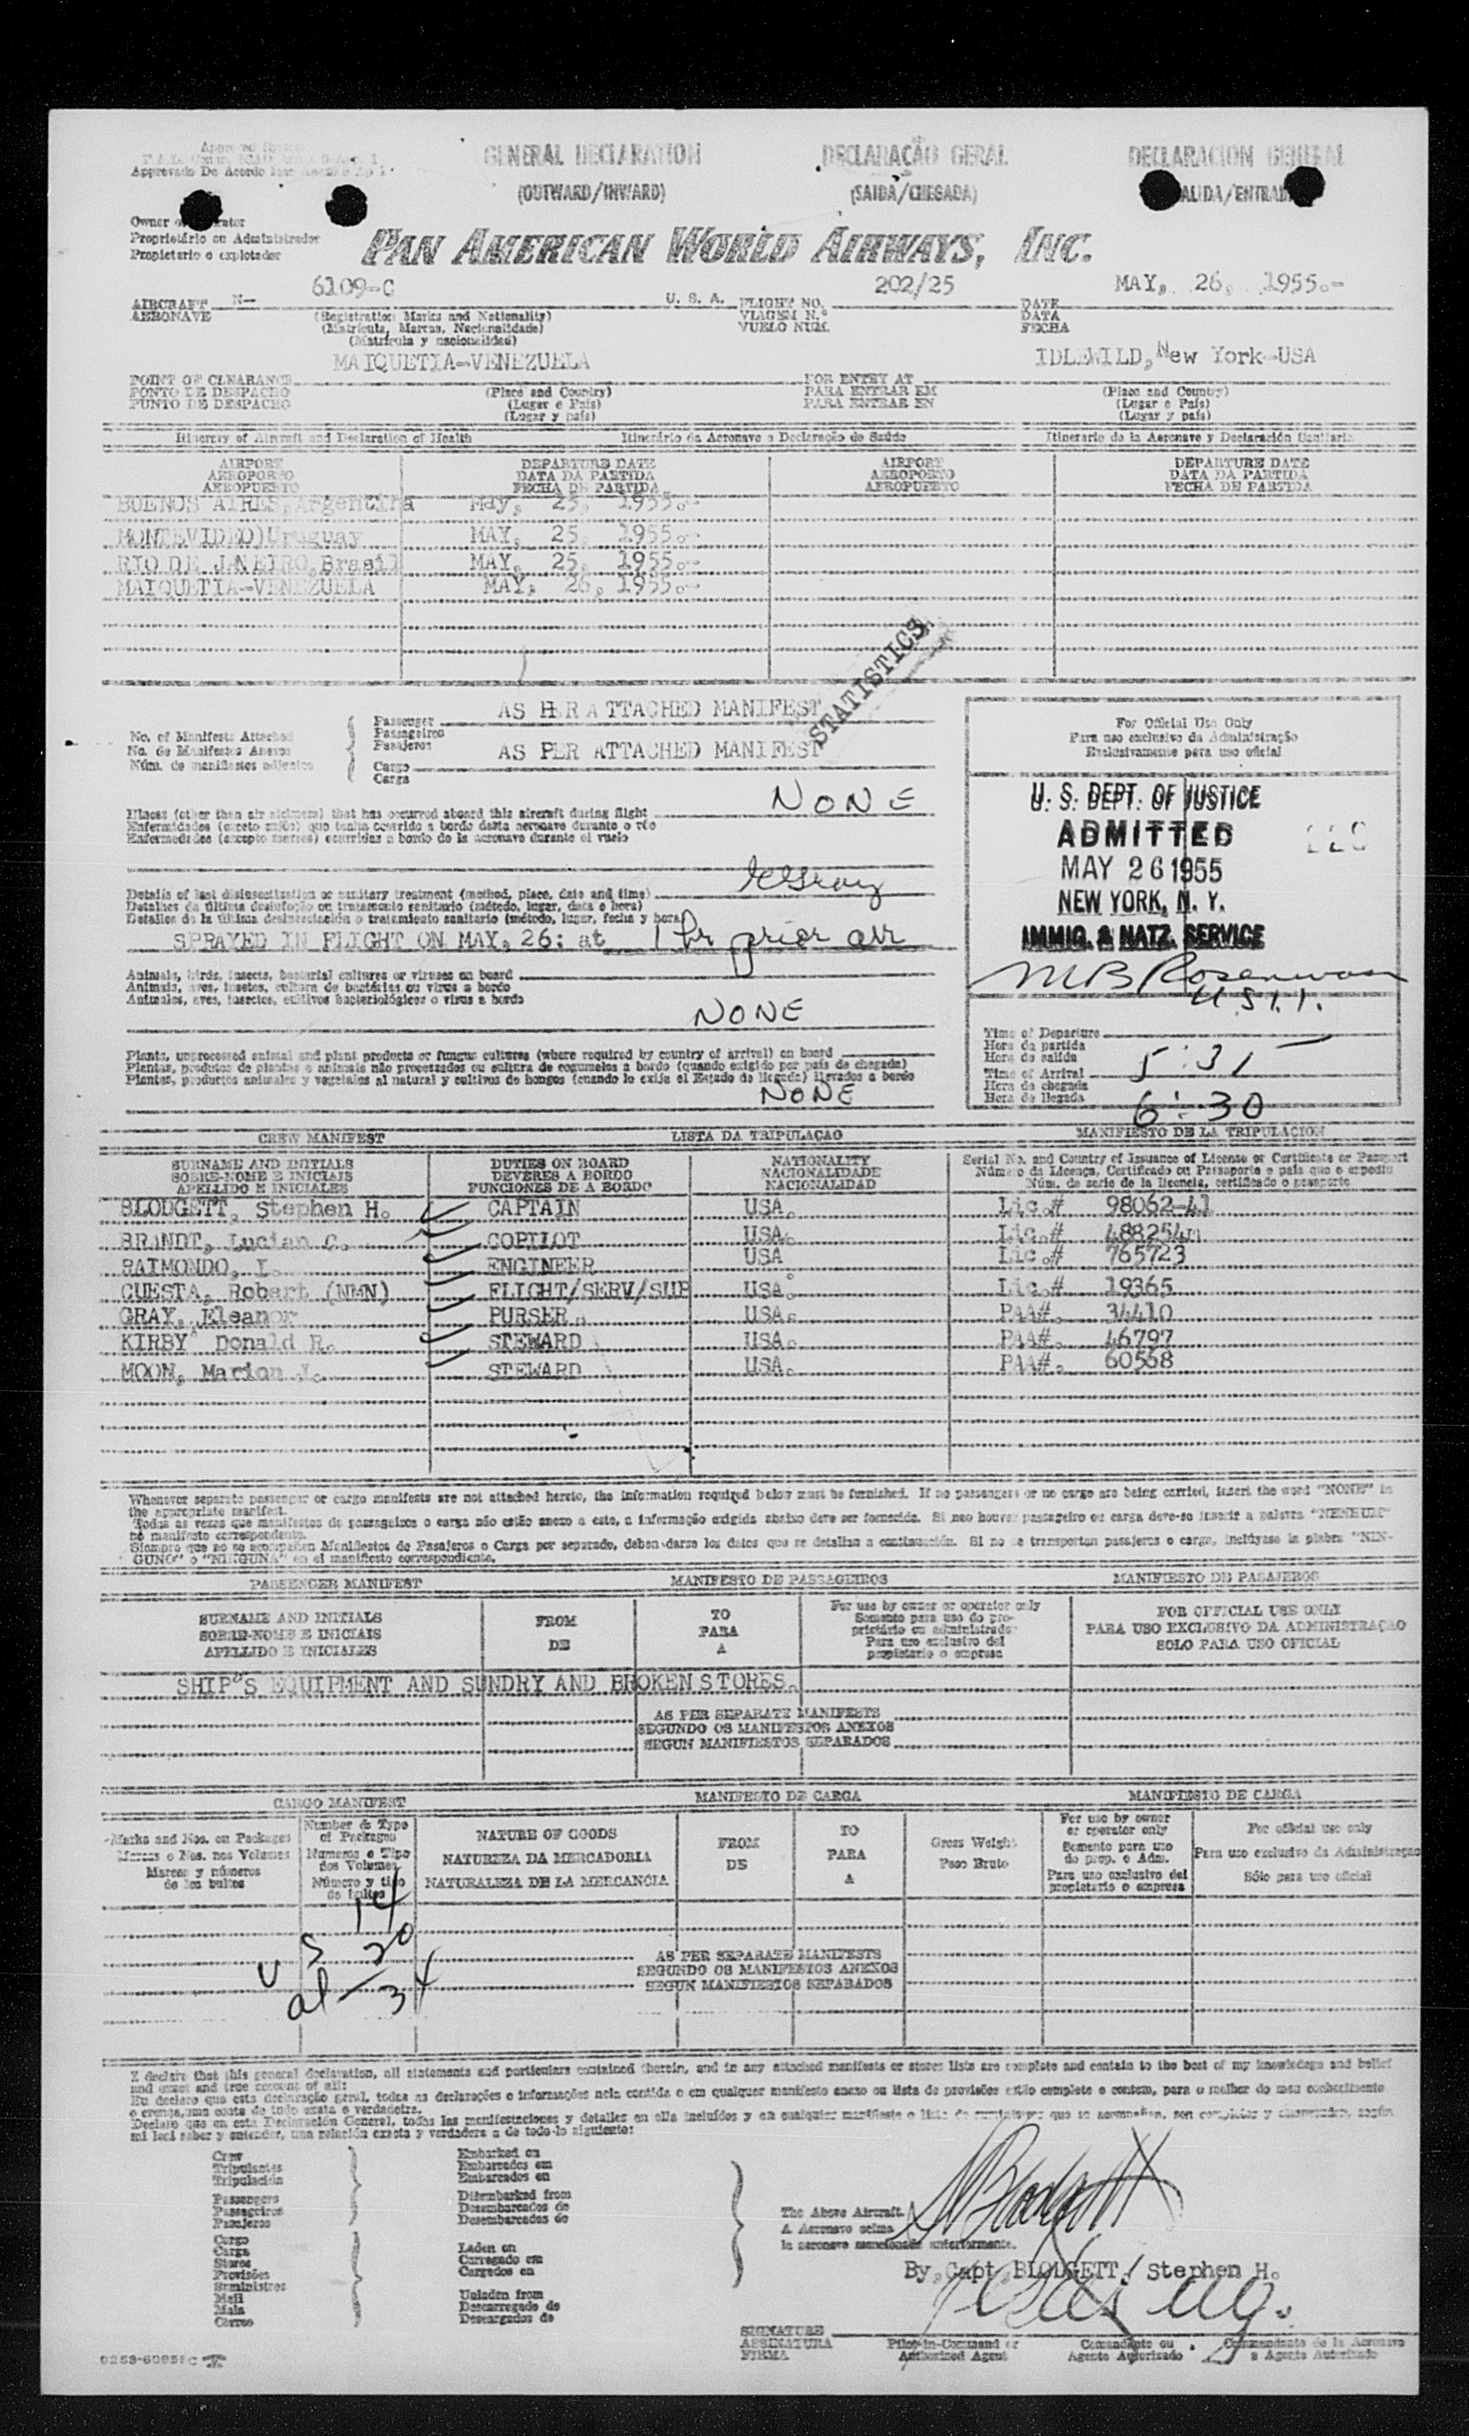 GENERAL DECLARATION DECLARAÇÃO GERAL DECLARACION GENERAL
(OUTWARD/INWARD) (SAIDA/CHEGADA) ALIDA/ENTRADA
Approvado De Acordo
Owner
Proprietário ou Administrador
Propietario o explotador
PAN AMERICAN WORLD AIRWAYS, INC.
AIRCRAFT N- 6109-C U. S. A. FLIGHT NO. 202/25 DATE MAY, 26, 1955.-
AERONAVE (Registration Marks and Nationality) VIAGEM N.º DATA
(Matrícula, Marcas, Nacionalidade) VUELO NUM. FECHA
(Matrícula y nacionalidad)
MAIQUETIA-VENEZUELA IDLEWILD, New York-USA
POINT OF CLEARANCE (Place and Country) FOR ENTRY AT (Place and Country)
PONTO DE DESPACHO (Lugar e País) PARA ENTRAR EM (Lugar e País)
PUNTO DE DESPACHO (Lugar y país) PARA ENTRAR EN (Lugar y país)
Itinerary of Aircraft and Declaration of Health Itinerário da Aeronave e Declaração de Saúde Itinerario de la Aeronave y Declaración Sanitaria
AIRPORT DEPARTURE DATE AIRPORT DEPARTURE DATE
AEROPORTO DATA DA PARTIDA AEROPORTO DATA DA PARTIDA
AEROPUERTO FECHA DE PARTIDA AEROPUERTO FECHA DE PARTIDA
BUENOS AIRES, Argentina May, 25, 1955.-
MONTEVIDEO)Uruguay MAY, 25, 1955.-
RIO DE JANEIRO, Brasil MAY, 25, 1955.-
MAIQUETIA-VENEZUELA MAY, 26, 1955.-
STATISTICS
No. of Manifests Attached Passenger AS PER ATTACHED MANIFEST
No. de Manifestos Anexos Passageiros
Núm. de manifiestos adjuntos Pasajeros
Cargo AS PER ATTACHED MANIFEST
Carga
For Official Use Only
Para uso exclusivo da Administração
Exclusivamente para uso oficial
U. S. DEPT. OF JUSTICE
ADMITTED
MAY 26 1955
NEW YORK, N. Y.
IMMIG. & NATZ. SERVICE
Illness (other than air sickness) that has occurred aboard this aircraft during flight NONE
Enfermidades (exceto enjôo) que tenha ocorrido a bordo desta aeronave durante o vôo
Enfermedades (excepto mareos) ocurridas a bordo de la aeronave durante el vuelo
Details of last disinsectization or sanitary treatment (method, place, date and time)
Detalhes da última desinfeção ou tratamento sanitário (método, lugar, data e hora)
Detalles de la última desinsectación o tratamiento sanitario (método, lugar, fecha y hora)
SPRAYED IN FLIGHT ON MAY, 26: at 1 hr prior arr
Animals, birds, insects, bacterial cultures or viruses on board
Animais, aves, insetos, cultura de bactérias ou vírus a bordo
Animales, aves, insectos, cultivos bacteriológicos o virus a bordo
NONE
Plants, unprocessed animal and plant products or fungus cultures (where required by country of arrival) on board
Plantas, produtos de plantas e animais não processados ou cultura de cogumelos a bordo (quando exigido por país de chegada)
Plantas, productos animales y vegetales al natural y cultivos de hongos (cuando lo exija el Estado de llegada) llevados a bordo
NONE
Time of Departure
Hora da partida
Hora de salida
Time of Arrival 5:31
Hora de chegada
Hora de llegada 6:30
CREW MANIFEST LISTA DA TRIPULAÇAO MANIFIESTO DE LA TRIPULACION
SURNAME AND INITIALS DUTIES ON BOARD NATIONALITY Serial No. and Country of Issuance of License or Certificate or Passport
SOBRE-NOME E INICIAIS DEVERES A BORDO NACIONALIDADE Número da Licença, Certificado ou Passaporte e país que o expediu
APELLIDO E INICIALES FUNCIONES DE A BORDO NACIONALIDAD Núm. de serie de la licencia, certificado o pasaporte
BLODGETT, Stephen H. CAPTAIN USA. Lic.# 98062-41
BRANDT, Lucian C. COPILOT USA. Lic.#
RAIMONDO, I. ENGINEER USA Lic.# 765723
CUESTA, Robert (NMN) FLIGHT/SERV/SUP USA. Lic.# 19365
GRAY, Eleanor PURSER USA. PAA#. 34410
KIRBY Donald R. STEWARD USA. PAA#. 46797
MOON, Marion J. STEWARD USA. PAA#. 60568
Whenever separate passenger or cargo manifests are not attached hereto, the information required below must be furnished. If no passengers or no cargo are being carried, insert the word "NONE" in
the appropriate manifest.
Todas as vezes que manifestos de passageiros o carga não estão anexo a este, a informação exigida abaixo deve ser fornecida. Si nao houver passageiro ou carga deve-se inserir a palavra "NENHUM"
no manifesto correspondente.
Siempre que no se acompañen Manifiestos de Pasajeros o Carga por separado, deben darse los datos que se detallan a continuación. Si no se transportan pasajeros o carga, inclúyase la plabra "NIN-
GUNO" o "NINGUNA" en el manifiesto correspondiente.
PASSENGER MANIFEST MANIFESTO DE PASSAGEIROS MANIFIESTO DE PASAJEROS
SURNAME AND INITIALS FROM TO For use by owner or operator only FOR OFFICIAL USE ONLY
SOBRE-NOME E INICIAIS DE PARA Somente para uso do pro- PARA USO EXCLUSIVO DA ADMINISTRAÇAO
APELLIDO E INICIALES A prietário ou administrador SOLO PARA USO OFICIAL
Para uso exclusivo del
propietario o empresa
SHIP'S EQUIPMENT AND SUNDRY AND BROKEN STORES.
AS PER SEPARATE MANIFESTS
SEGUNDO OS MANIFESTOS ANEXOS
SEGUN MANIFIESTOS SEPARADOS
CARGO MANIFEST MANIFESTO DE CARGA MANIFIESTO DE CARGA
Marks and Nos. on Packages Number & Type of Packages NATURE OF GOODS FROM TO Gross Weight For use by owner or operator only For official use only
Marcas e Nos. nos Volumes Numeros e Tipo dos Volumes NATUREZA DA MERCADORIA DE PARA Peso Bruto Somente para uso do prop. o Adm. Para uso exclusivo da Administraçao
Marcas y números de los bultos Número y tipo de bultos NATURALEZA DE LA MERCANCIA A Para uso exclusivo del propietario o empresa Sólo para uso oficial
14
U S 20
al - 34
AS PER SEPARATE MANIFESTS
SEGUNDO OS MANIFESTOS ANEXOS
SEGUN MANIFIESTOS SEPARADOS
I declare that this general declaration, all statements and particulars contained therein, and in any attached manifests or stores lists are complete and contain to the best of my knowledge and belief
and exact and true account of all:
Eu declaro que esta declaração geral, todas as declarações e informações nela contida e em qualquer manifesto anexo ou lista de provisões estão completo e contem, para o melhor do meu conhecimento
e crença, uma conta de todo exata e verdadeira.
Declaro que en esta Declaración General, todas las manifestaciones y detalles en ella incluídos y en cualquier manifiesto o lista de suministros que se acompañan, son completas y según
mi leal saber y entender, una relación exacta y verdadera a de todo lo siguiente:
Crew Embarked on
Tripulantes Embarcados em
Tripulación Embarcados en
Passengers Disembarked from
Passageiros Desembarcados de
Pasajeros Desembarcados de
Cargo
Carga Laden on
Stores Carregado em
Provisões Cargados en
Suministros
Mail Unladen from
Mala Descarregado de
Correo Descargados de
The Above Aircraft.
A Aeronave acima
la aeronave mencionada anteriormente.
By, Capt. BLODGETT, Stephen H.
SIGNATURE
ASSINATURA Pilot-in-Command or Comandante ou Commandante de la Aeronave
FIRMA Authorized Agent Agente Autorizado o Agente Autorizado